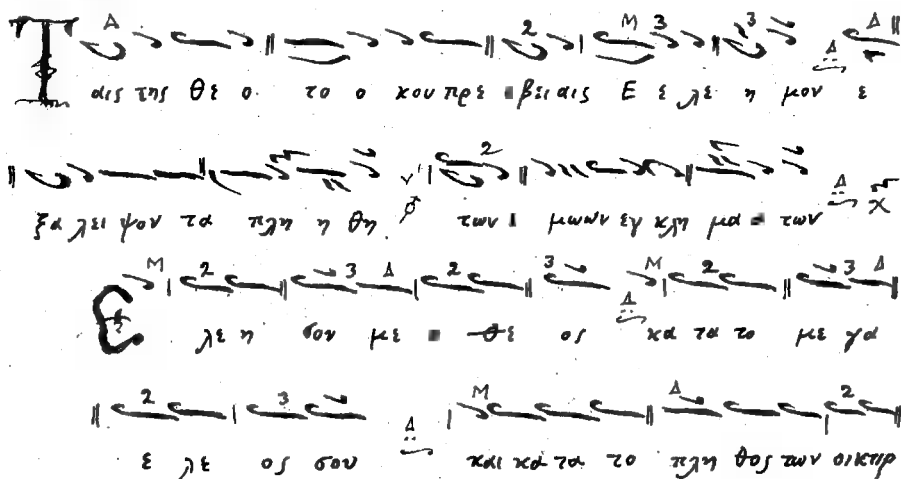 Ταις της θε ο το ο κου πρε βει αις Ε ε λε η μον ε
ξα λει ψον τα πλη η θη των μωων εγ κλη μα των
Ε λε η σον με θε ος κα τα το με γα
ε λε ος σου και κα τα το πλη θος των οικτιρ